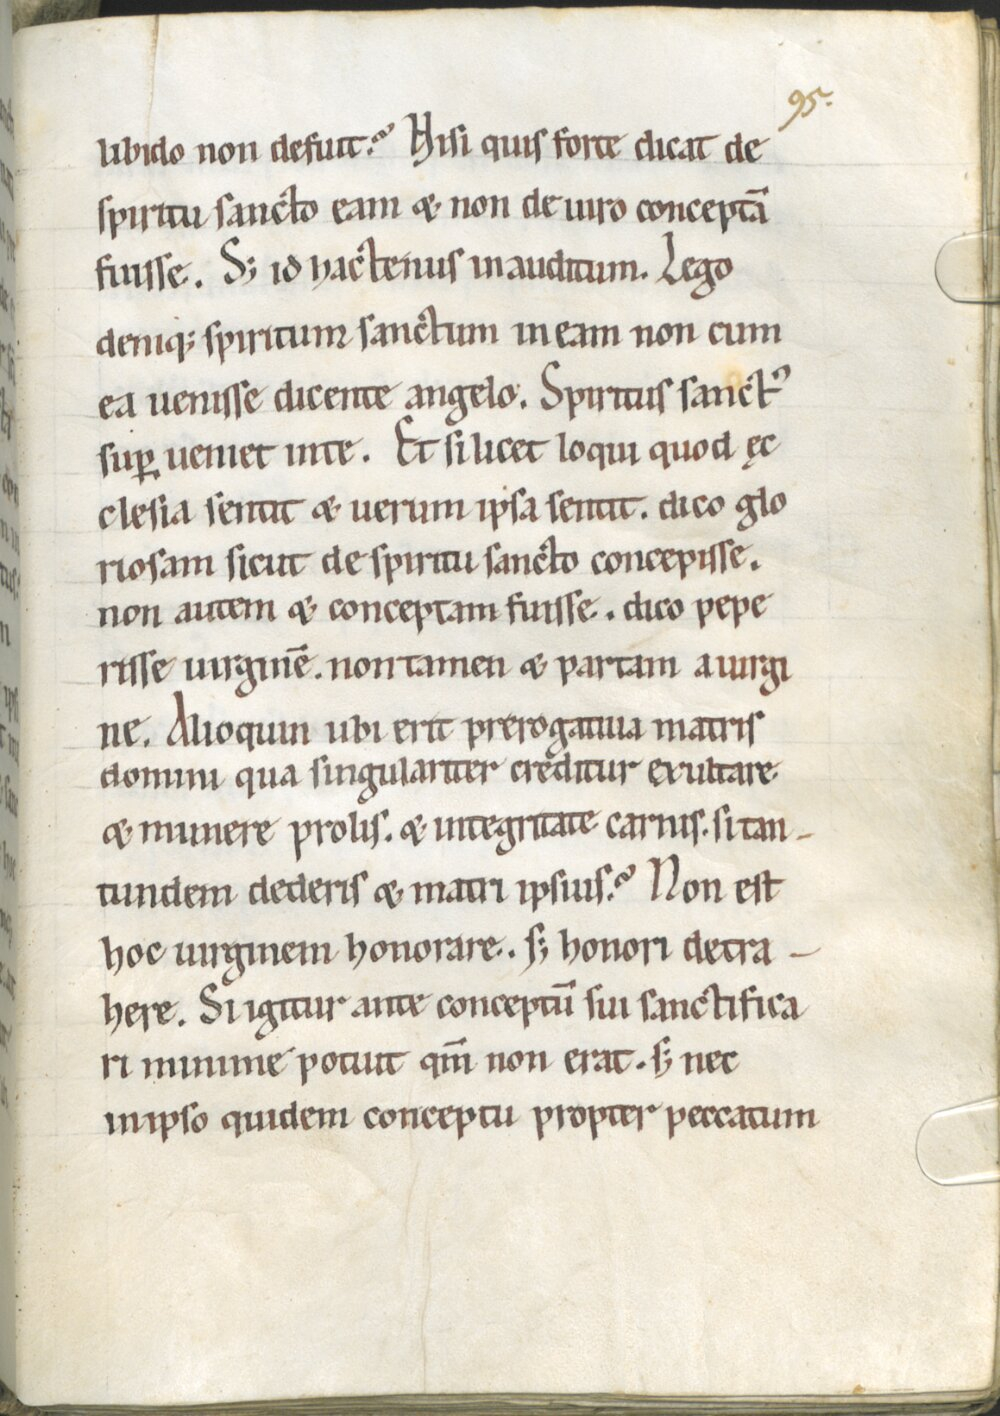 95.
libido non defuit? Nisi quis forte dicat de
spiritu sancto eam & non de uiro conceptā
fuisse. Sꝫ id hactenus inauditum. Lego
deniqꝫ spiritum sanctum in eam non cum
ea uenisse dicente angelo. Spiritus sanctꝰ
suꝑ ueniet inte. Et si licet loqui quod ęc
clesia sentit & uerum ipsa sentit. dico glo
riosam sicut de spiritu sancto concepisse.
non autem & conceptam fuisse. dico pepe
risse uirginē. non tamen & partam a uirgi
ne. Alioquin ubi erit prerogatiua matris
domini qua singulariter creditur exultare
& munere prolis. & integritate carnis. si tan-
tundem dederis & matri ipsius? Non est
hoc uirginem honorare. sꝫ honori detra-
here. Si igitur ante conceptū sui sanctifica
ri minime potuit qm̄ non erat. sꝫ nec
in ipso quidem conceptu propter peccatum